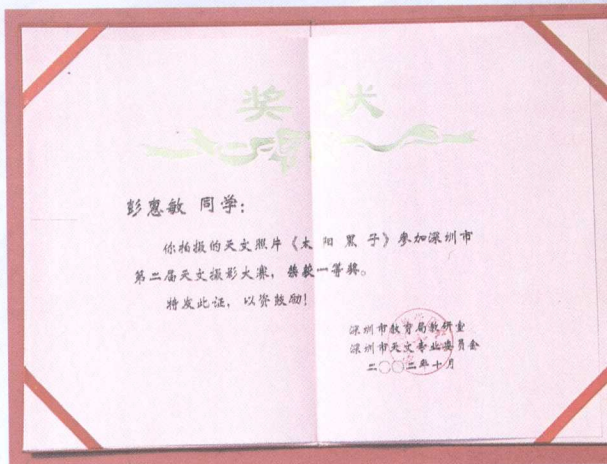 奖 状
彭惠敏 同学：
你拍摄的天文照片《太阳黑子》参加深圳市
第二届天文摄影大赛，荣获一等奖。
特发此证，以资鼓励！
深圳市教育局教研室
深圳市天文专业委员会
二〇〇二年十月